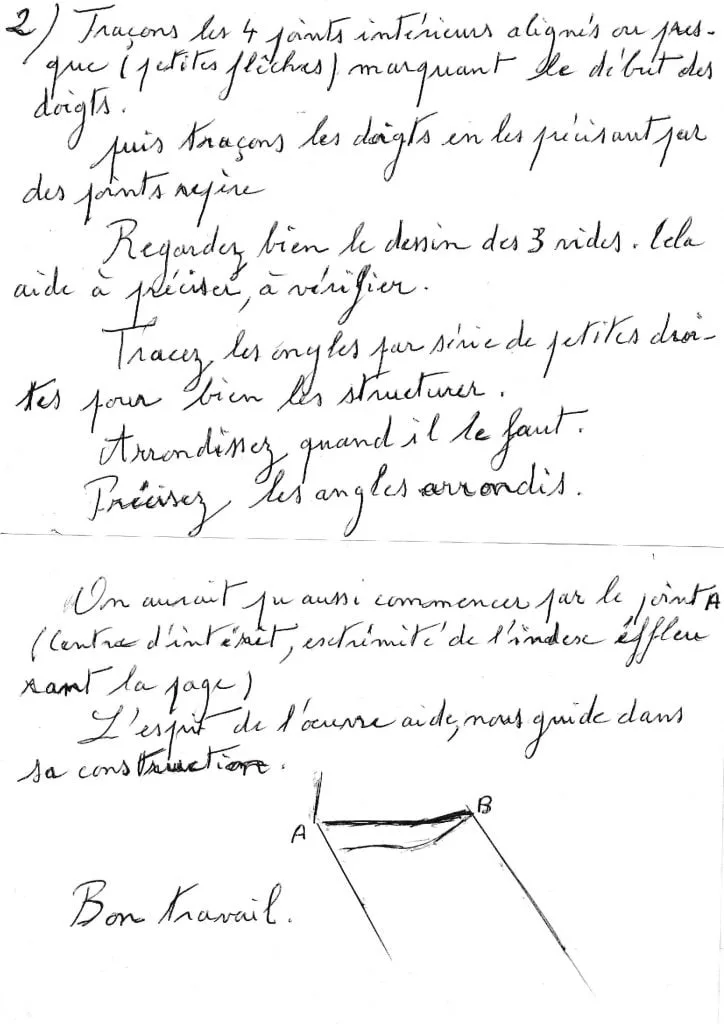 2) Traçons les 4 points intérieurs alignés ou pres-
que (petites flèches) marquant le début des
doigts.
puis traçons les doigts en les précisant par
des points repère
Regardez bien le dessin des 3 vides. Cela
aide à préciser, à vérifier.
Tracez les ongles par série de petites droi-
tes pour bien les structurer.
Arrondissez quand il le faut.
Précisez les angles arrondis.
On aurait pu aussi commencer par le point A
(Centre d'intérêt, extrémité de l'index éffleu
rant la page)
L'esprit de l'œuvre aide, nous guide dans
sa construction.
A B
Bon travail.